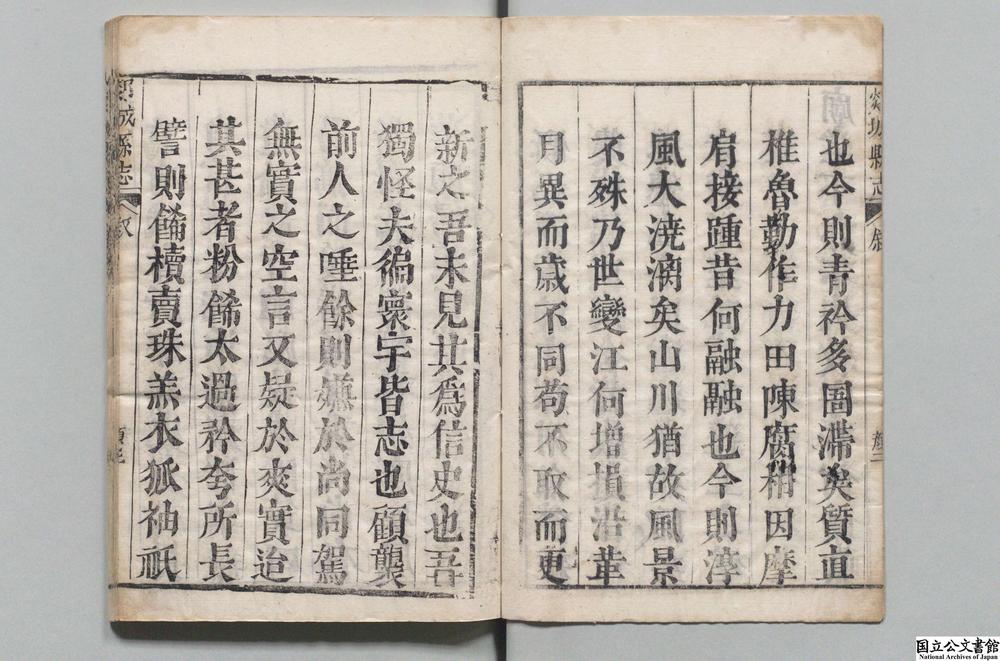 也今則青衿多囹滯矣質直
椎魯勤作力田陳腐相因摩
肩接踵昔何融融也今則渟
風大澆漓矣山川猶故風景
不殊乃世變江何增損沿革
月異而歲不同苟不取而更
新之吾未見其爲信史也吾
獨怪夫徧寰宇皆志也顧襲
前人之唾餘則嫌於尚同駕
無實之空言又疑於爽實迨
其甚者粉餙太過矜夸所長
譬則餙櫝賣珠羔衣狐袖祇
城縣志
叙
国立公文書館
National Archives of Japan